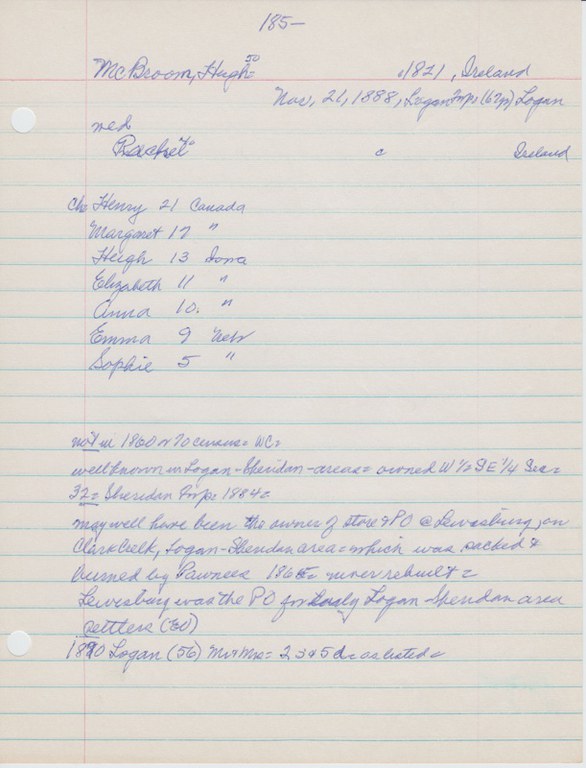 185-
McBroom, Hugh 50 1821, Ireland
Nov, 21, 1888, Logan Twp. (67y) Logan
med
Rachel c Ireland
ch Henry 21 Canada
Margaret 17 "
Hugh 13 Iowa
Elizabeth 11 "
Anna 10. "
Emma 9 Nebr
Sophie 5 "
not in 1860 or 70 census = WC =
well known in Logan-Sheridan-areas = owned W 1/2 SE 1/4 Sec=
32= Sheridan Twp. 1884=
may well have been the owner of store & PO @ Lewisburg, on
Clark Creek, Logan-Sheridan area = which was sacked &
burned by Pawnees 1865= never rebuilt=
Lewisburg was the PO for Logan-Sheridan area
settlers ('60)
1880 Logan (56) Mr & Mrs = 2 s & 5 d = as listed =